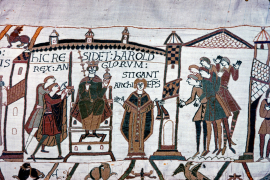 HIC RE
REX: AN
SIDET: hAROLD
GLORVM:
STIGANT
ARChIEPS